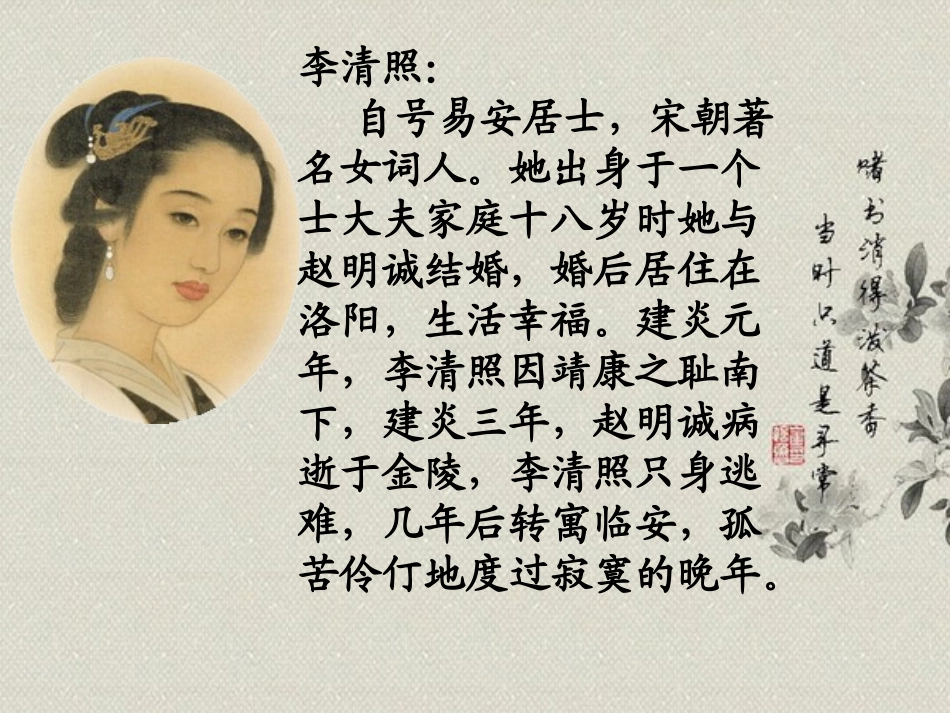 李清照：
自号易安居士，宋朝著
名女词人。她出身于一个
士大夫家庭十八岁时她与
赵明诚结婚，婚后居住在
洛阳，生活幸福。建炎元
年，李清照因靖康之耻南
下，建炎三年，赵明诚病
逝于金陵，李清照只身逃
难，几年后转寓临安，孤
苦伶仃地度过寂寞的晚年。
赌书消得泼茶香
当时只道是寻常